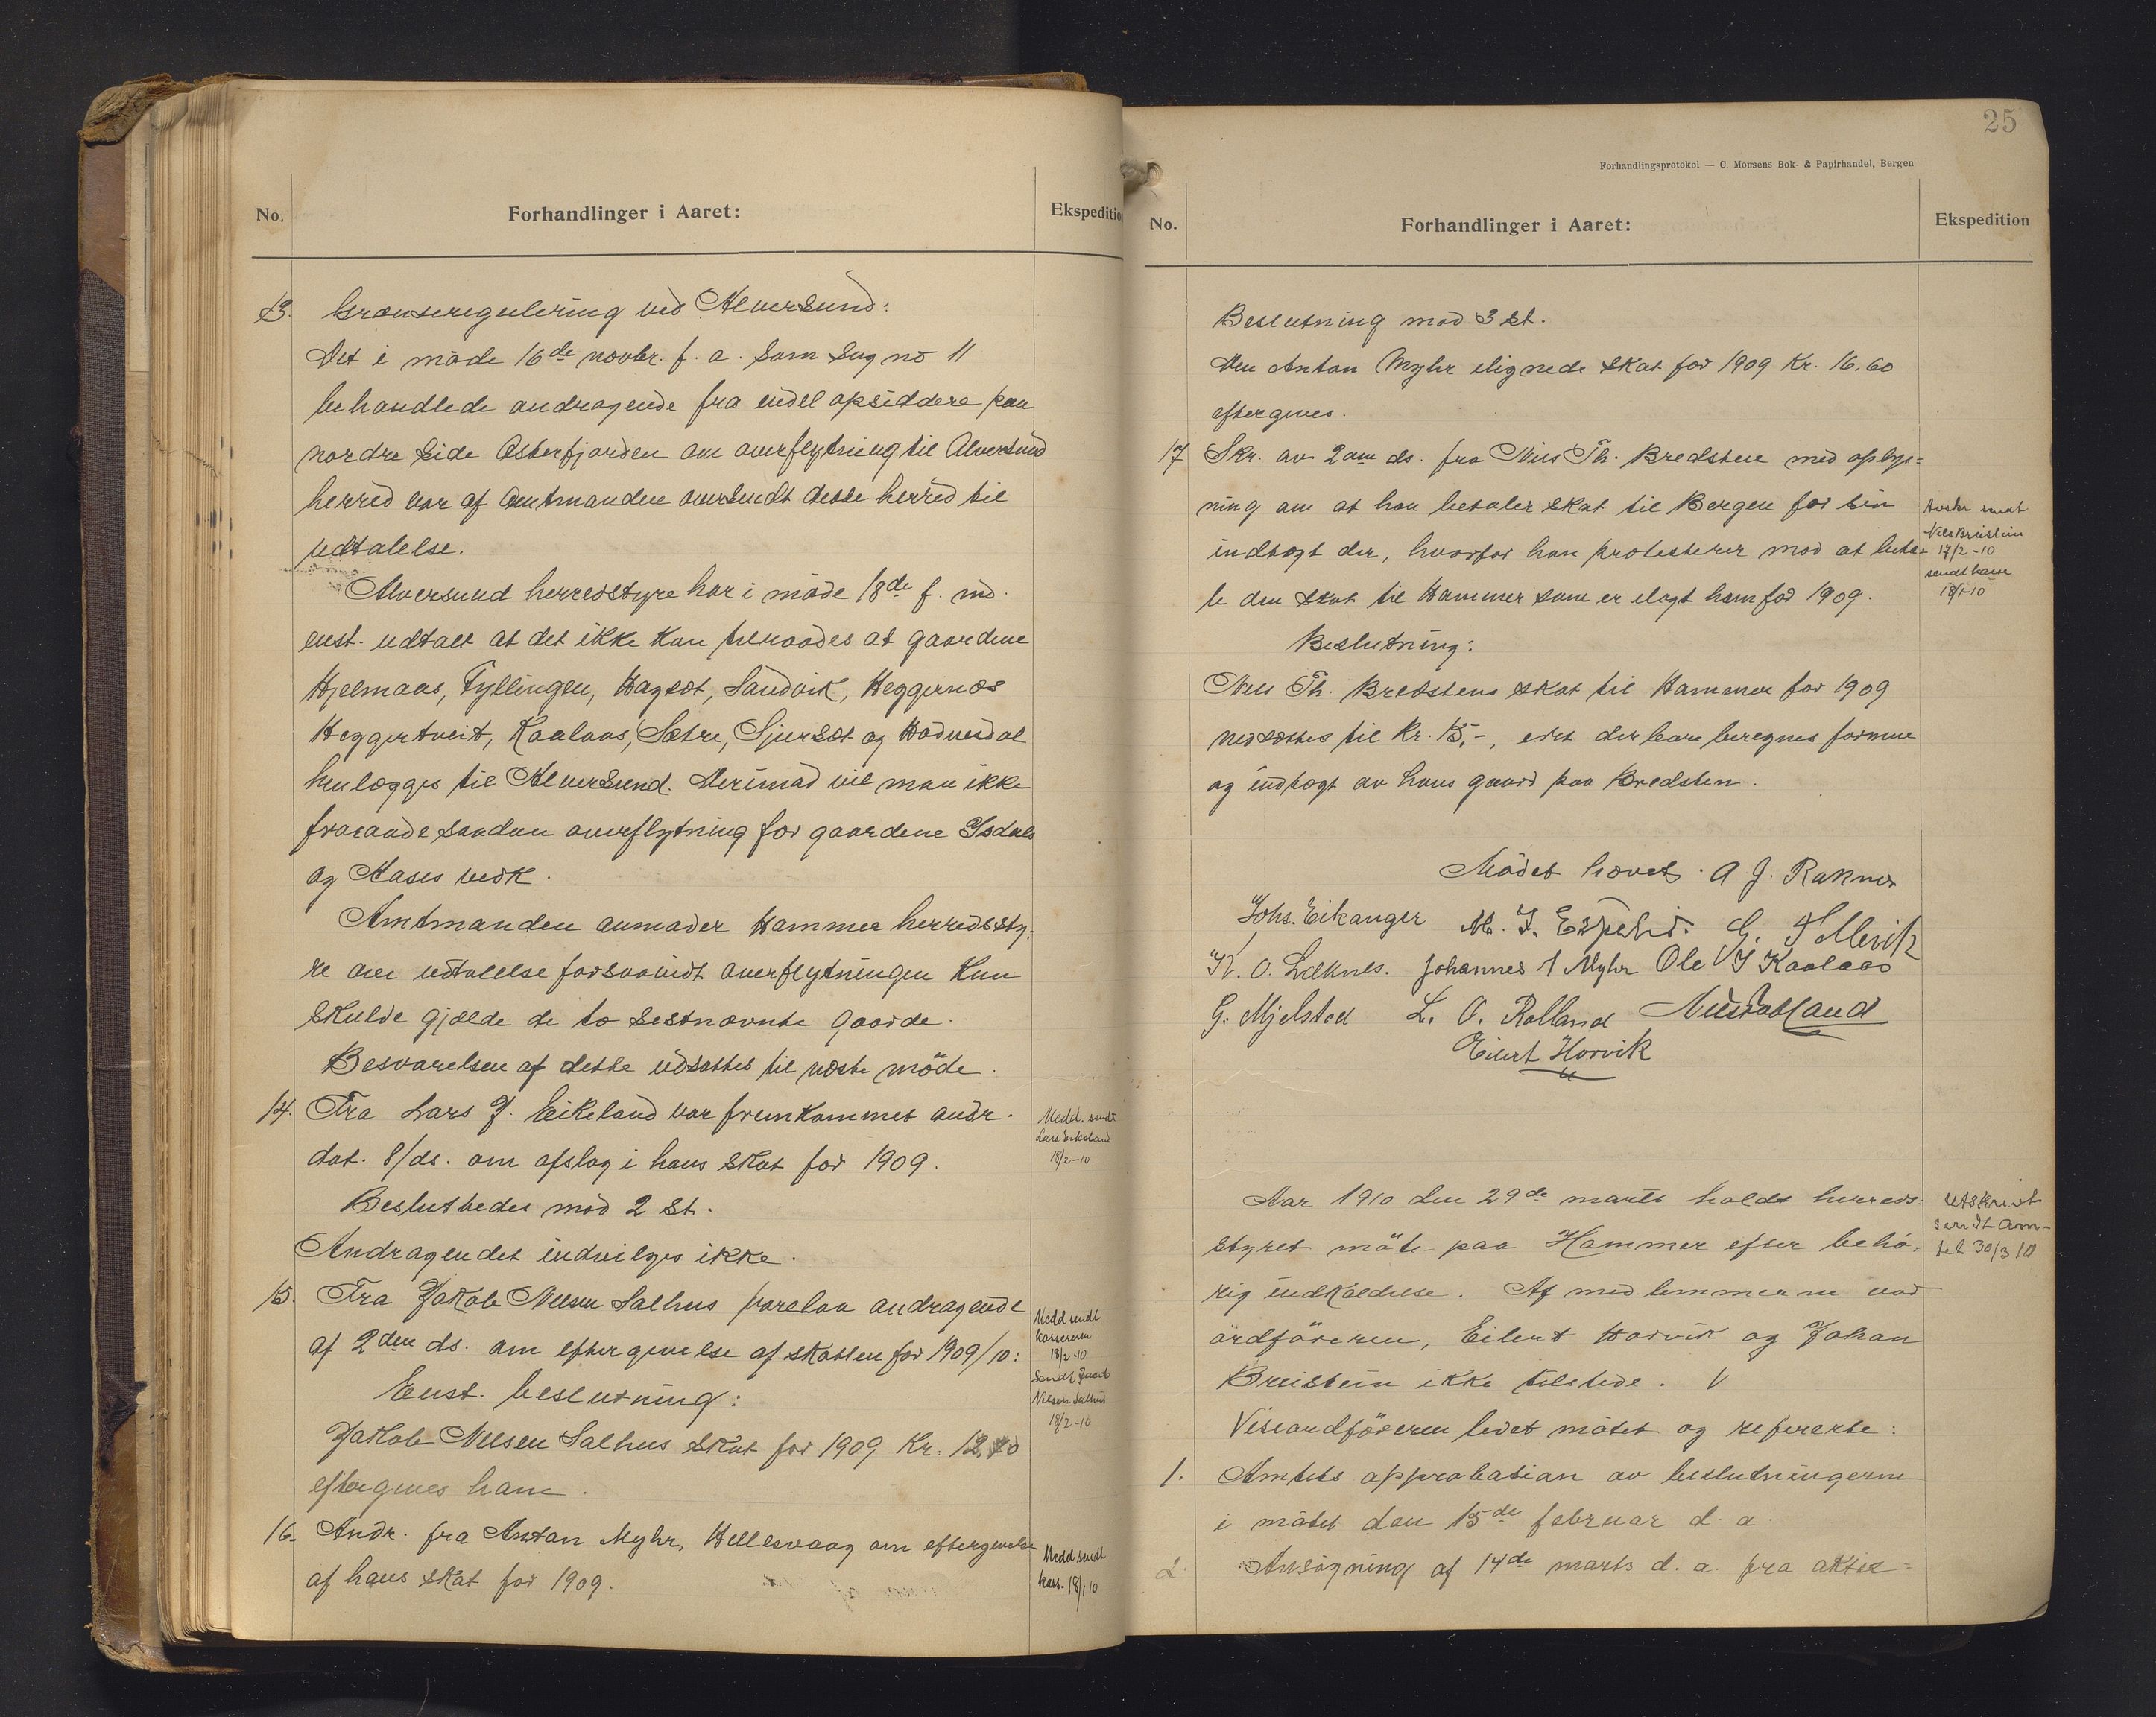 No.
Forhandlinger i Aaret:
Ekspedition
13. Grænseregulering ved Alversund:
Det i møde 16de novbr. f. a. som sag no 11
behandlede andragende fra endel opsiddere paa
nordre side Osterfjorden om overflytning til Alversund
herred var af Amtmanden oversendt dette herred til
udtalelse.
Alversund herredstyre har i møde 18de f. md.
enst. udtalt at det ikke kan tilraades at gaardene
Hjelmaas, Fyllingen, Hagset, Sandvik, Heggernæs
Heggertveit, Kaalaas, Sætre, Gjerset og Hodnedal
henlægges til Alversund. Derimod vil man ikke
fraraade saadan overflytning for gaardene Isdals
og Aases vedk.
Amtmanden anmoder Hammer herredssty-
re om udtalelse forsaavidt overflytningen kun
skulde gjælde de to sestnævnte gaarde.
Besvarelsen af dette udsattes til næste møde.
14. Fra Lars J. Eikeland var fremkommet andr.
dat. 8/ds. om afslag i hans skat for 1909.
Besluttedes mod 2 st.
Andragendet indvilges ikke.
Medd. sendt
Lars Eikeland
18/2-10
15. Fra Jakob Nilsen Salhus forelaa andragende
af 2den ds. om eftergivelse af skatten for 1909/10:
Enst. beslutning:
Jakob Nilsen Salhus skat for 1909 Kr. 12,70
eftergives ham.
Medd sendt
kassereren
18/2-10
Sendt Jacob
Nilsen Salhus
18/2-10
16. Andr. fra Anton Myhr, Hellesvaag om eftergivelse
af hans skat for 1909.
Medd sendt
kass. 18/1 10
25
Forhandlingsprotokol — C. Monsens Bok- & Papirhandel, Bergen
No.
Forhandlinger i Aaret:
Ekspedition
Beslutning mod 3 st.
Den Anton Myhr ilignede skat for 1909 Kr. 16,60
eftergives.
17 Skr. av 2den ds. fra Nils Th. Bredsten med oplys-
ning om at han betaler skat til Bergen for sin
indtægt der, hvorfor han protesterer mod at beta-
le den skat til Hammer som er ilagt ham for 1909.
Beslutning:
Nils Th. Bredstens skat til Hammer for 1909
nedsættes til Kr. 15,-, idet der bare beregnes formue
og indtægt av hans gaard paa Bredsten.
sendt
Nils Breistein
17/2-10
sendt kasse
18/1-10
Mödet hævet. A J. Raknes
Johs. Eikanger M. J. Espelid. G.
K. O. Leknes. Johannes A Myhr Ole I Kaalaas
G. Mjelstad L. O. Rolland Nils
Eilert Horvik
Aar 1910 den 29de marts holdt herreds-
styret møte paa Hammer efter behø-
rig indkaldelse. Af medlemmerne var
ordføreren, Eilert Horvik og Johan
Breistein ikke tilstede. V
Viseordføreren ledet møtet og refererte:
utskrift
sendt am-
tet 30/3 10
1. Amtets approbation av beslutningerne
i møtet den 15de februar d. a.
2. Ansøgning af 14de marts d. a. fra aktie-